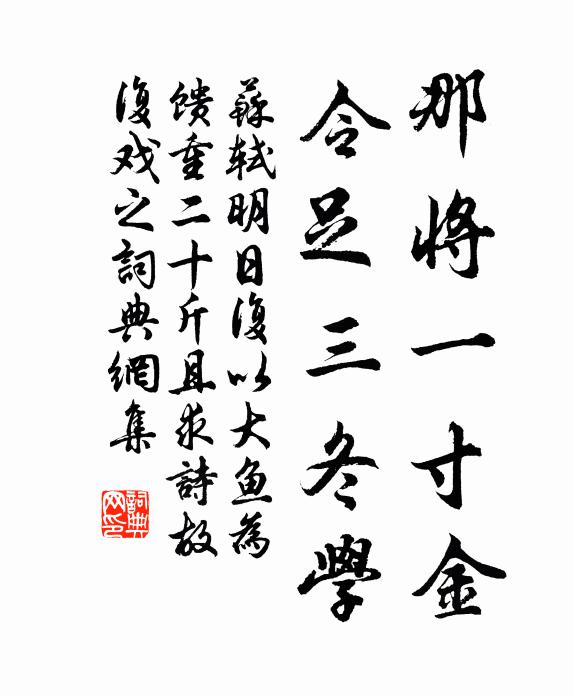 那將一寸金
令足三冬學
蘇軾明日復以大鱼為
馈重二十斤且求詩故
復戏之詞典網集
詞典网印